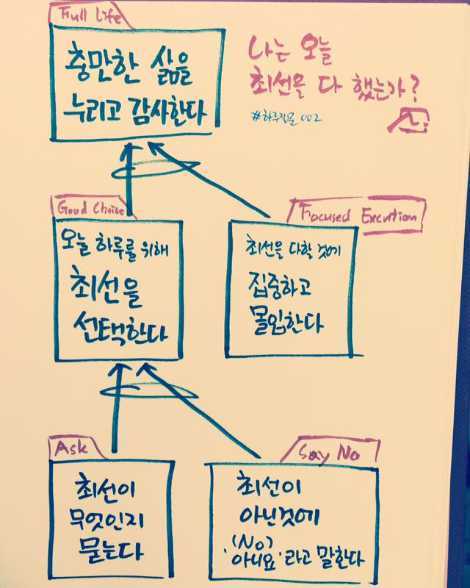 Full Life
충만한 삶을
누리고 감사한다
나는 오늘
최선을 다 했는가?
#하루질문 002
Good Choice
오늘 하루를 위해
최선을
선택한다
Focused Execution
최선을 다할 것에
집중하고
몰입한다
Ask
최선이
무엇인지
묻는다
Say No
최선이
아닌것에
(No)
'아니요'라고 말한다